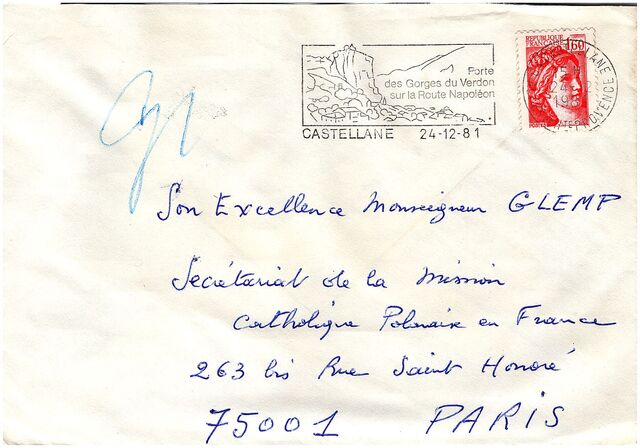 REPUBLIQUE
FRANÇAISE 1,60
Porte
des Gorges du Verdon
sur la Route Napoléon
CASTELLANE 24-12-81
Son Excellence Monseigneur GLEMP
Secrétariat de la Mission
Catholique Polonaise en France
263 bis Rue Saint Honoré
75001 PARIS